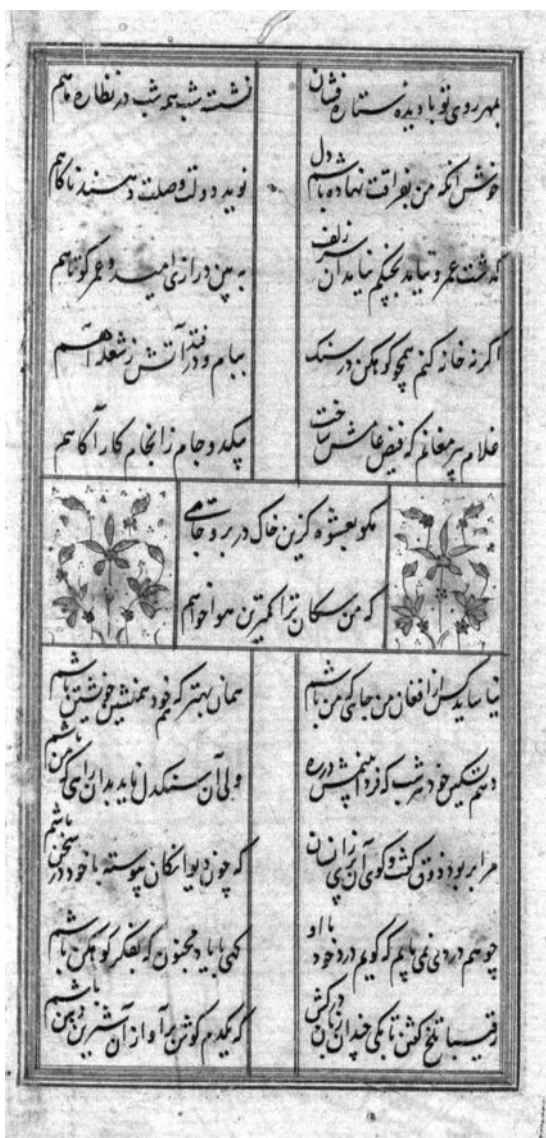 بمهر روی تو با دیده ستاره فشان نشسته شب همه شب در نظاره ماهم
خوش آنکه من بفراقت نهاده باشم دل نوید دولت وصلت دهند ناکاهم
گذشت عمر و نیامد بچنگم آن سر زلف ببین درازی امید و عمر کوتاهم
اگر نه خانه کنم همچو کوهکن در سنک ببام و در فتد آتش ز شعله آهم
غلام پیر مغانم که فیض عامش ساخت بیکدو جام ز انجام کار آکاهم
مکو بعشوه کزین خاک در برو جامی
که من سکان ترا کمترین هواخواهم
نیاساید کس از افغان من جایی که من باشم همان بهتر که هم خود همنشین خویشتن باشم
دهم تسکین خود هر شب که فردا بینمش در ره ولی آن سنکدل ناید بدان راهی که من باشم
مرا بربود ذوق کفت و کوی آن پری زانسان که چون دیوانکان پیوسته با خود در سخن باشم
چو هم دردی نمی یابم که کویم درد خود با او کهی با یاد مجنون که بفکر کوهکن باشم
رقیبا تلخ کفتن تا بکی چندان زبان درکش که یکدم کوش بر آواز آن شیرین دهن باشم